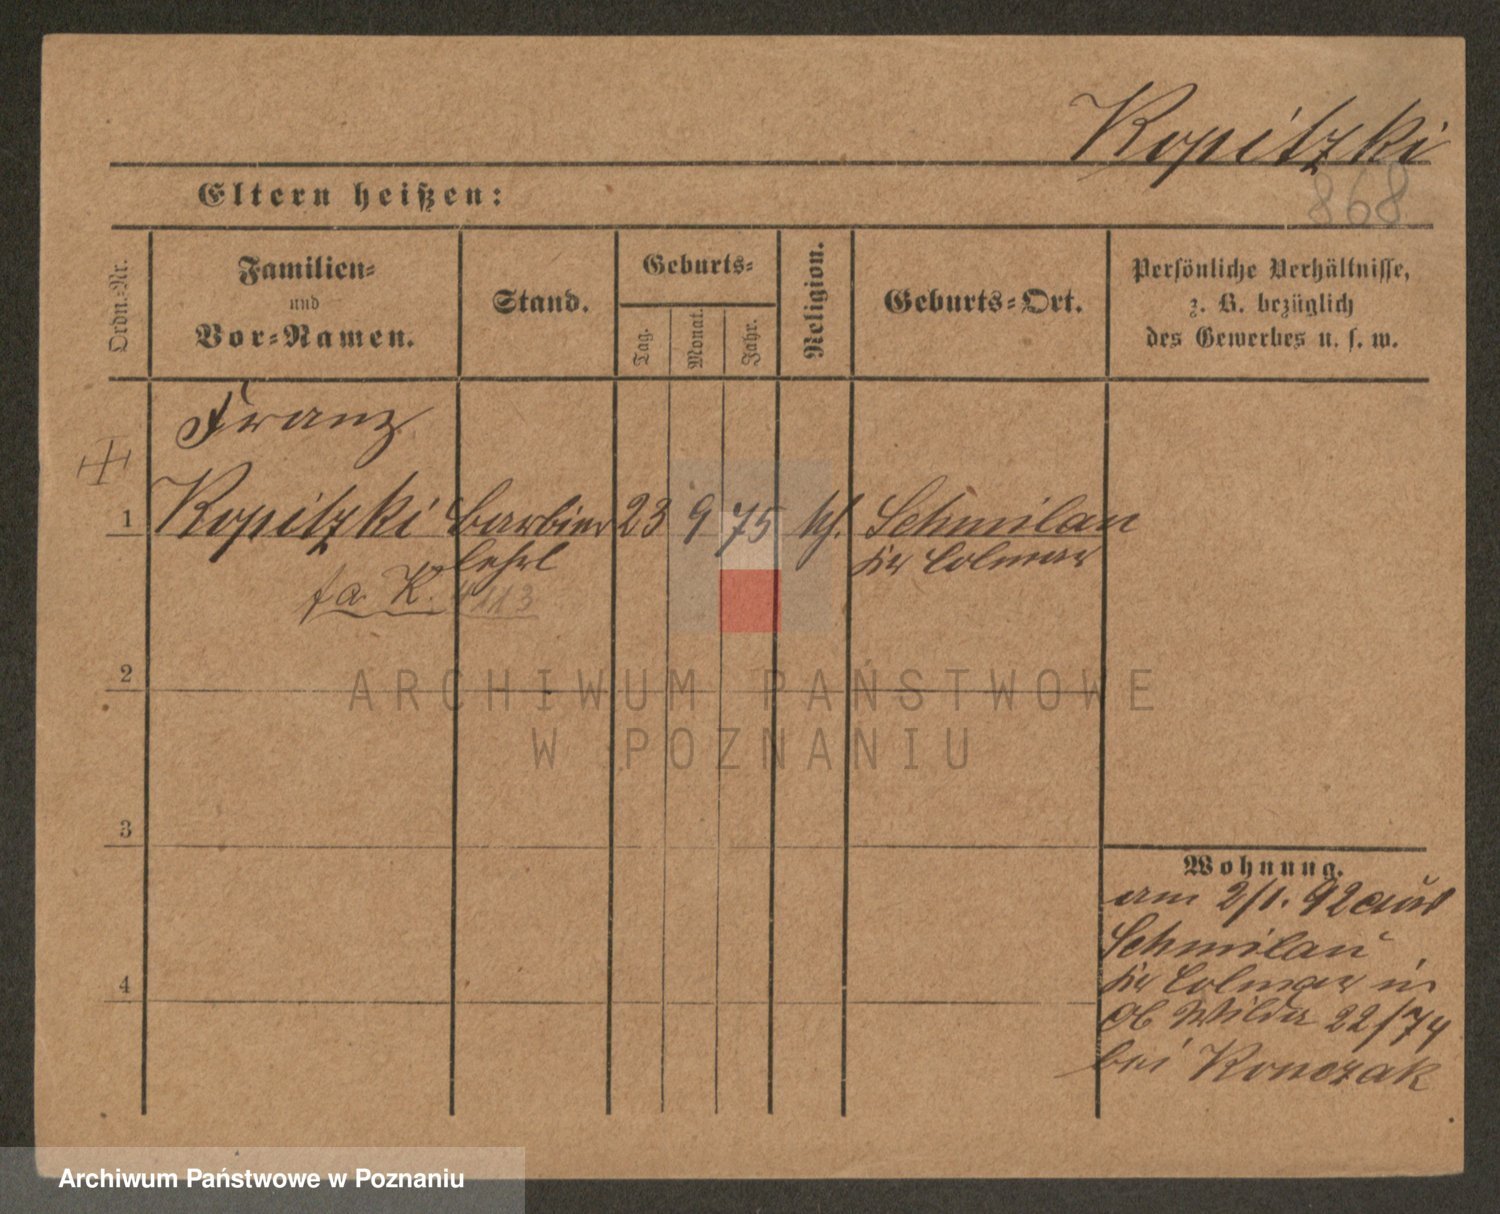 Kopitzki
868
Eltern heißen:
Ordn.-Nr.
Familien-
und
Vor-Namen.
Stand.
Geburts-
Tag.
Monat.
Jahr.
Religion.
Geburts-Ort.
Persönliche Verhältnisse,
z. B. bezüglich
des Gewerbes u. s. w.
Franz
1 Kopitzki Barbier 23 9 75 kf. Schmilau
lehrl Kr Colmar
fa K. 113
2
ARCHIWUM PAŃSTWOWE
W POZNANIU
3
Wohnung.
am 2/1. 92 aus
Schmilau
4
Kr Colmar in
Ob Wilda 22/74
bei Konczak
Archiwum Państwowe w Poznaniu